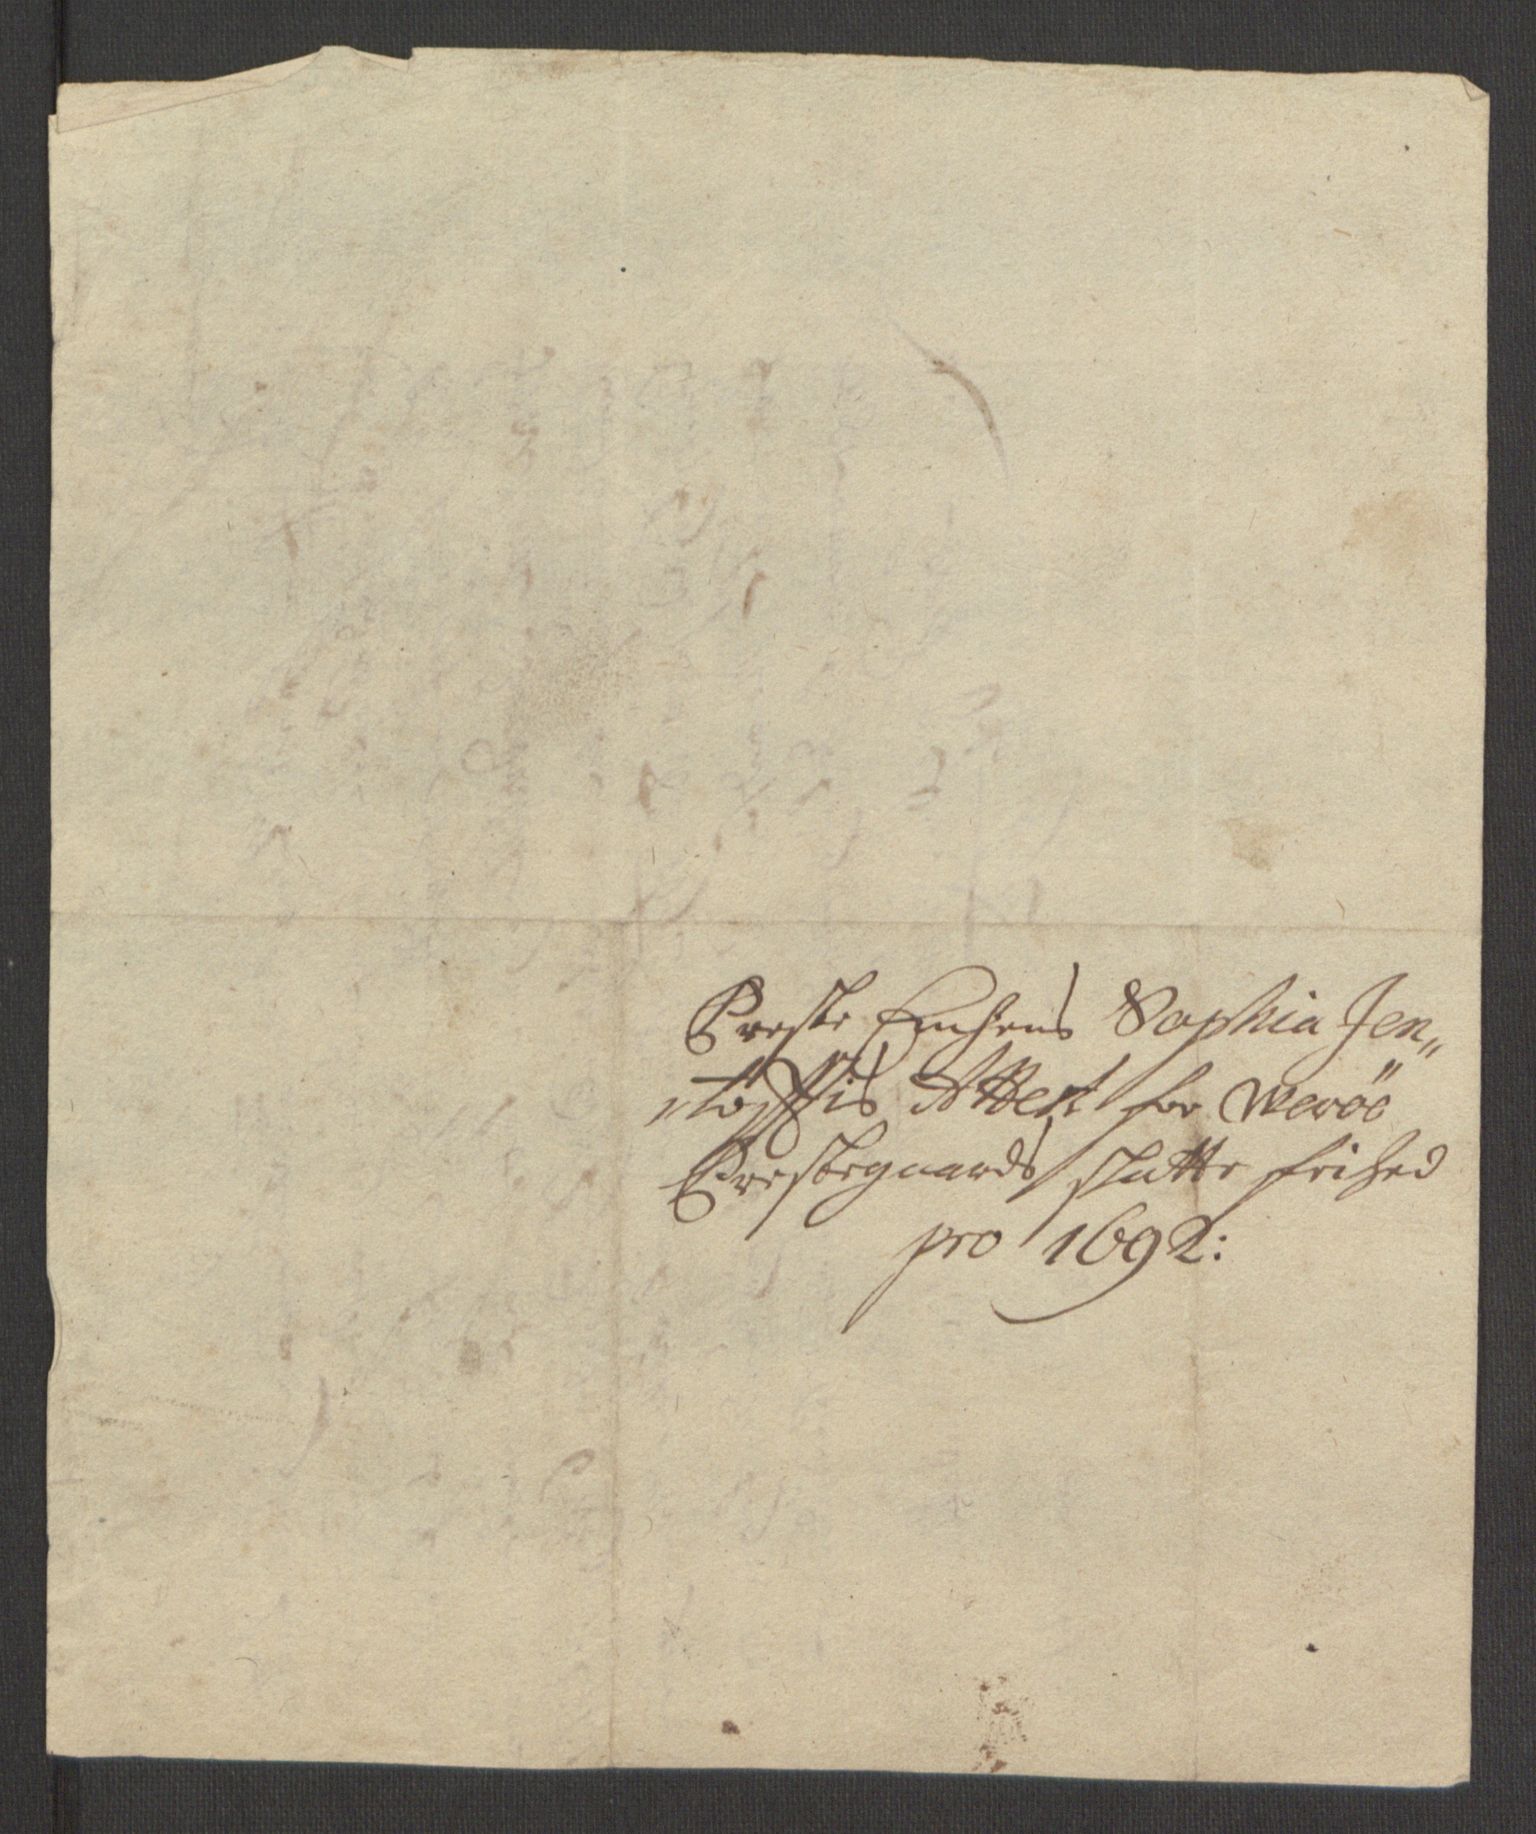 Preste Enchens Sophia Jen„
tøfftis Attest for Weröe
Prestegaards skatte frihed
pro 1692: